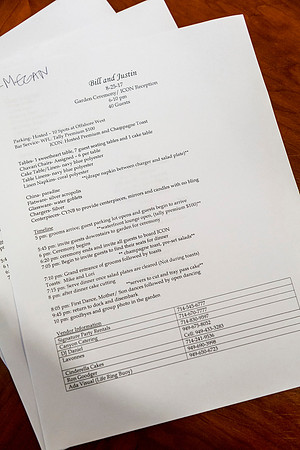 -MEGAN
Bill and Justin
8-25-17
Garden Ceremony/ ICON Reception
6-10 pm
40 Guests
Parking: Hosted - 10 Spots at Offshore West
Bar Service- WFL: Tally Premium $100
ICON: Hosted Premium and Champagne Toast
Tables- 1 sweetheart table, 7 guest seating tables and 1 cake table
Chavari Chairs- Assigned - 6 per table
Cake Table/Linen- navy blue polyester
Table Linen- navy blue polyester
Linen Napkins- coral polyester **(drape napkin between charger and salad plate)**
China- paradise
Flatware- silver acropolis
Glassware- water goblets
Chargers- Silver
Centerpieces- CYNB to provide centerpieces, mirrors and candles with no bling
Timeline
5 pm: grooms arrive; guest parking lot opens and guests begin to arrive
**waterfront lounge open, (tally premium $100)**
5:45 pm: invite guests downstairs to garden for ceremony
6 pm: Ceremony begins
6:20 pm: ceremony ends and invite all guests to board ICON
7:05 pm: Begin to invite guests to find their seats for dinner
** champagne toast, pre-set salads**
7:10 pm: Grand entrance of grooms followed by toasts
Toasts: Mike and Lori
7:15 pm: Serve dinner once salad plates are cleared (Not during toasts)
8 pm: after dinner cake cutting **servers to cut and tray pass cake**
8:05 pm: First Dance, Mother/ Son dances followed by open dancing
9:45 pm: return to dock and disembark
10 pm: goodbyes and group photo in the garden
Vendor Information:
Signature Party Rentals 714-545-6777
Canyon Catering 714-670-7777
DJ Daniel 714-830-9597
Lavonnes 949-675-8052
Cell: 949-433-3283
Cinderella Cakes 714-241-9536
Ron Goodger 949-690-3998
Ada Visual (Life Ring Buoy) 949-650-6723